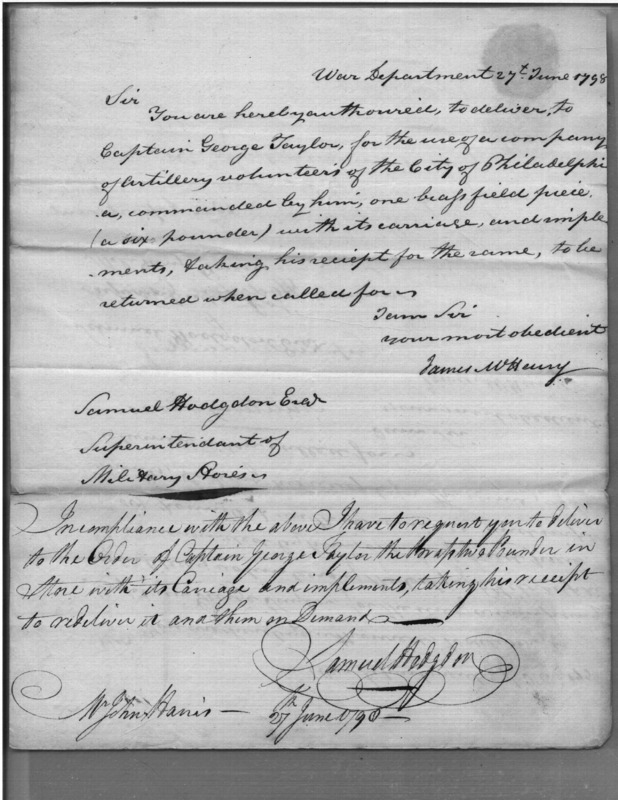 War Department 27th June 1798
Sir
You are hereby authourised, to deliver, to
Captain George Taylor, for the use of a company
of Artillery volunteers of the City of Philadelphi
a, commanded by him, one brass field peice
(a six pounder) with its carriage, and imple
ments, taking his reciept for the same, to be
returned when called for
I am Sir
your most obedient
James McHenry
Samuel Hodgdon Esqr
Superintendant of
Military Stores
In compliance with the above I have to request you to deliver
to the Order of Captain George Taylor the Brass Pounder in
Store with its Carriage and implements, taking his receipt
to redeliver it and them on Demand
Samuel Hodgdon
Mr John Harris
27th June 1798